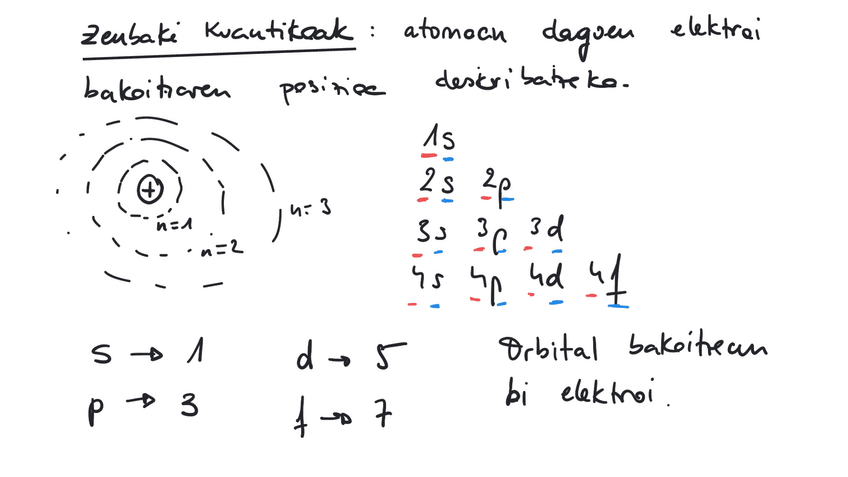 Zenbaki Kuantikoak : atomoan dagoen elektroi
bakoitzaren posizioa deskribatzeko.
n=1
n=2
n=3
1s
2s 2p
3s 3p 3d
4s 4p 4d 4f
s → 1
p → 3
d → 5
f → 7
Orbital bakoitzean
bi elektroi.